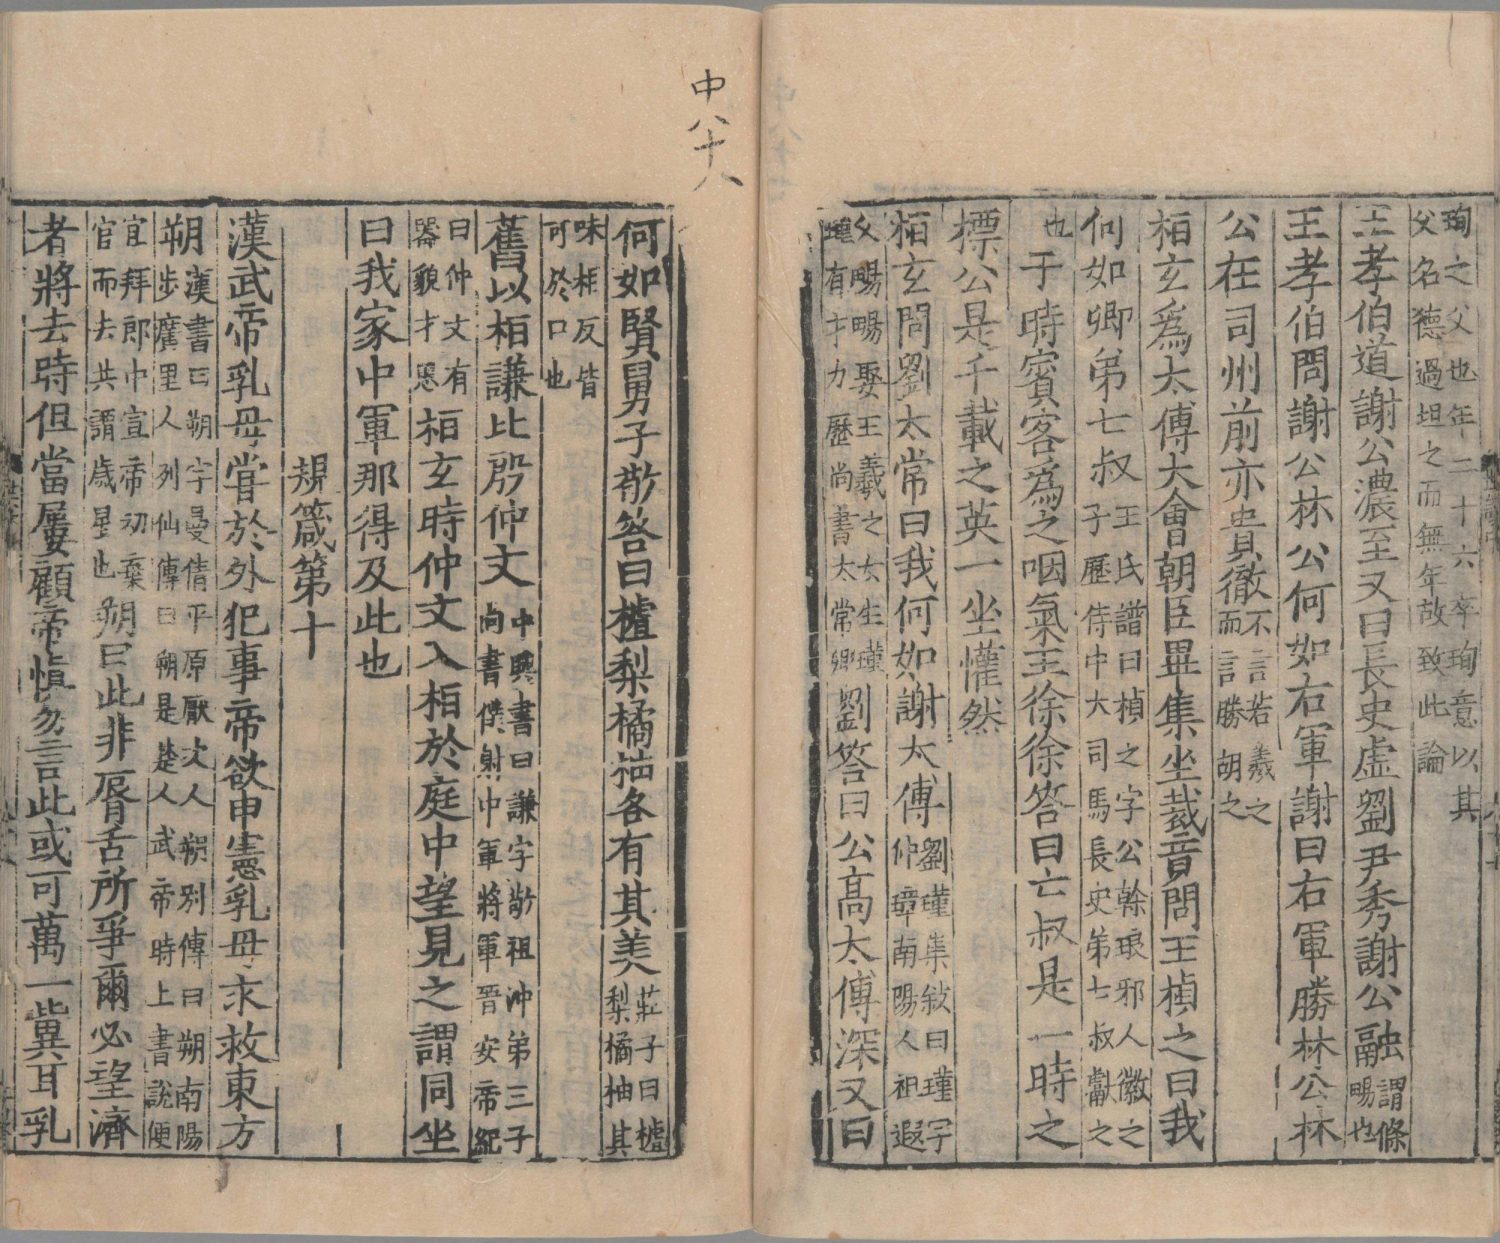 珣之父也年二十六卒珣意以其
父名德過坦之而無年故致此論
王孝伯道謝公濃至又曰長史虛劉尹秀謝公融謂條暢也
王孝伯問謝公林公何如右軍謝曰右軍勝林公林
公在司州前亦貴徹不言若羲之而言勝胡之
桓玄爲太傅大會朝臣畢集坐裁竟問王楨之曰我
何如卿第七叔王氏譜曰楨之字公幹琅邪人徽之子歷侍中大司馬長史第七叔獻之
也于時賓客爲之咽氣王徐徐答曰亡叔是一時之
標公是千載之英一坐懽然
桓玄問劉太常曰我何如謝太傅劉瑾集敘曰瑾字仲璋南陽人祖遐
父暢暢娶王羲之女生瑾瑾有才力歷尚書太常卿劉答曰公高太傅深又曰
中八十八
何如賢舅子敬答曰樝梨橘柚各有其美莊子曰樝梨橘柚其
味相反皆可於口也
舊以桓謙比殷仲文中興書曰謙字敬祖沖第三子尚書僕射中軍將軍晉安帝紀
曰仲文有器貌才思桓玄時仲文入桓於庭中望見之謂同坐
曰我家中軍那得及此也
規箴第十
漢武帝乳母嘗於外犯事帝欲申憲乳母求救東方
朔漢書曰朔字曼倩平原厭次人朔別傳曰朔南陽步廣里人列仙傳曰朔是楚人武帝時上書說便
宜拜郎中宣帝初棄官而去共謂歲星也朔曰此非脣舌所爭爾必望濟
者將去時但當屢顧帝慎勿言此或可萬一冀耳乳